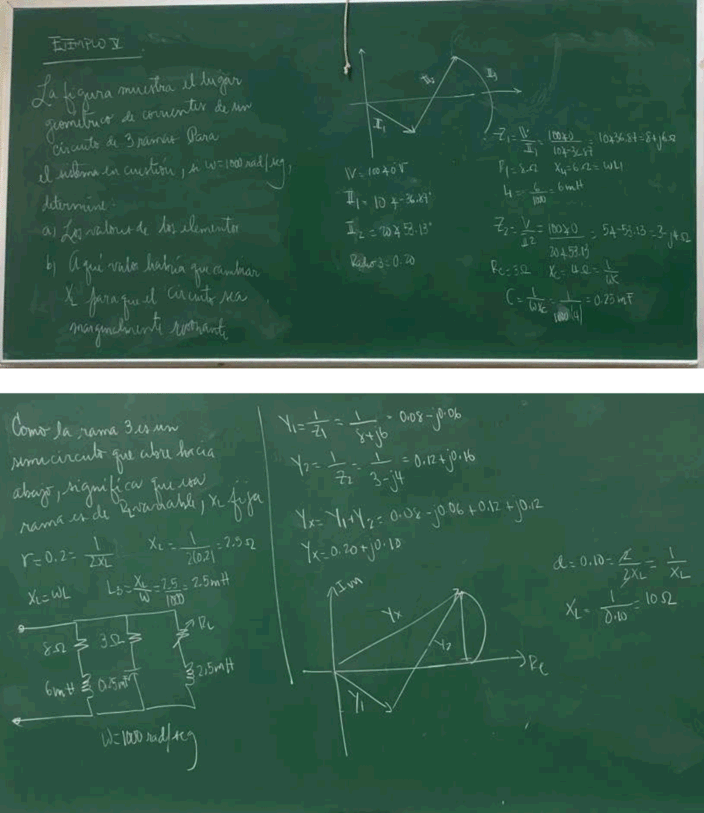 EJEMPLO V
La figura muestra el lugar
geométrico de corrientes de un
circuito de 3 ramas. Para
el sistema en cuestión, si W=1000 rad/seg,
determine:
a) Los valores de los elementos
b) A qué valor habría que cambiar
XL para que el circuito sea
marginalmente resonante
II1
II2
II3
V=100∠0 V
II1=10∠-36.87°
II2=20∠53.13°
Radio3=0.20
Z1=V/II1=100∠0/10∠-36.87=10∠36.87=8+j6Ω
R1=8Ω XL1=6Ω=WL1
L1=6/1000=6mH
Z2=V/II2=100∠0/20∠53.13=5∠-53.13=3-j4Ω
RC=3Ω XC=4Ω=1/WC
C=1/WXC=1/1000(4)=0.25mF
Como la rama 3 es un
semicírculo que abre hacia
abajo, significa que esa
rama es de RL variable, XL fija
r=0.2=1/2XL XL=1/2(0.2)=2.5Ω
XL=WL L3=XL/W=2.5/1000=2.5mH
8Ω
3Ω
RL
6mH
0.25mF
2.5mH
W=1000 rad/seg
Y1=1/Z1=1/8+j6=0.08-j0.06
Y2=1/Z2=1/3-j4=0.12+j0.16
Yx=Y1+Y2=0.08-j0.06+0.12+j0.12
Yx=0.20+j0.10
Im
Yx
Y2
Y1
Re
d=0.10=2/2XL=1/XL
XL=1/0.10=10Ω